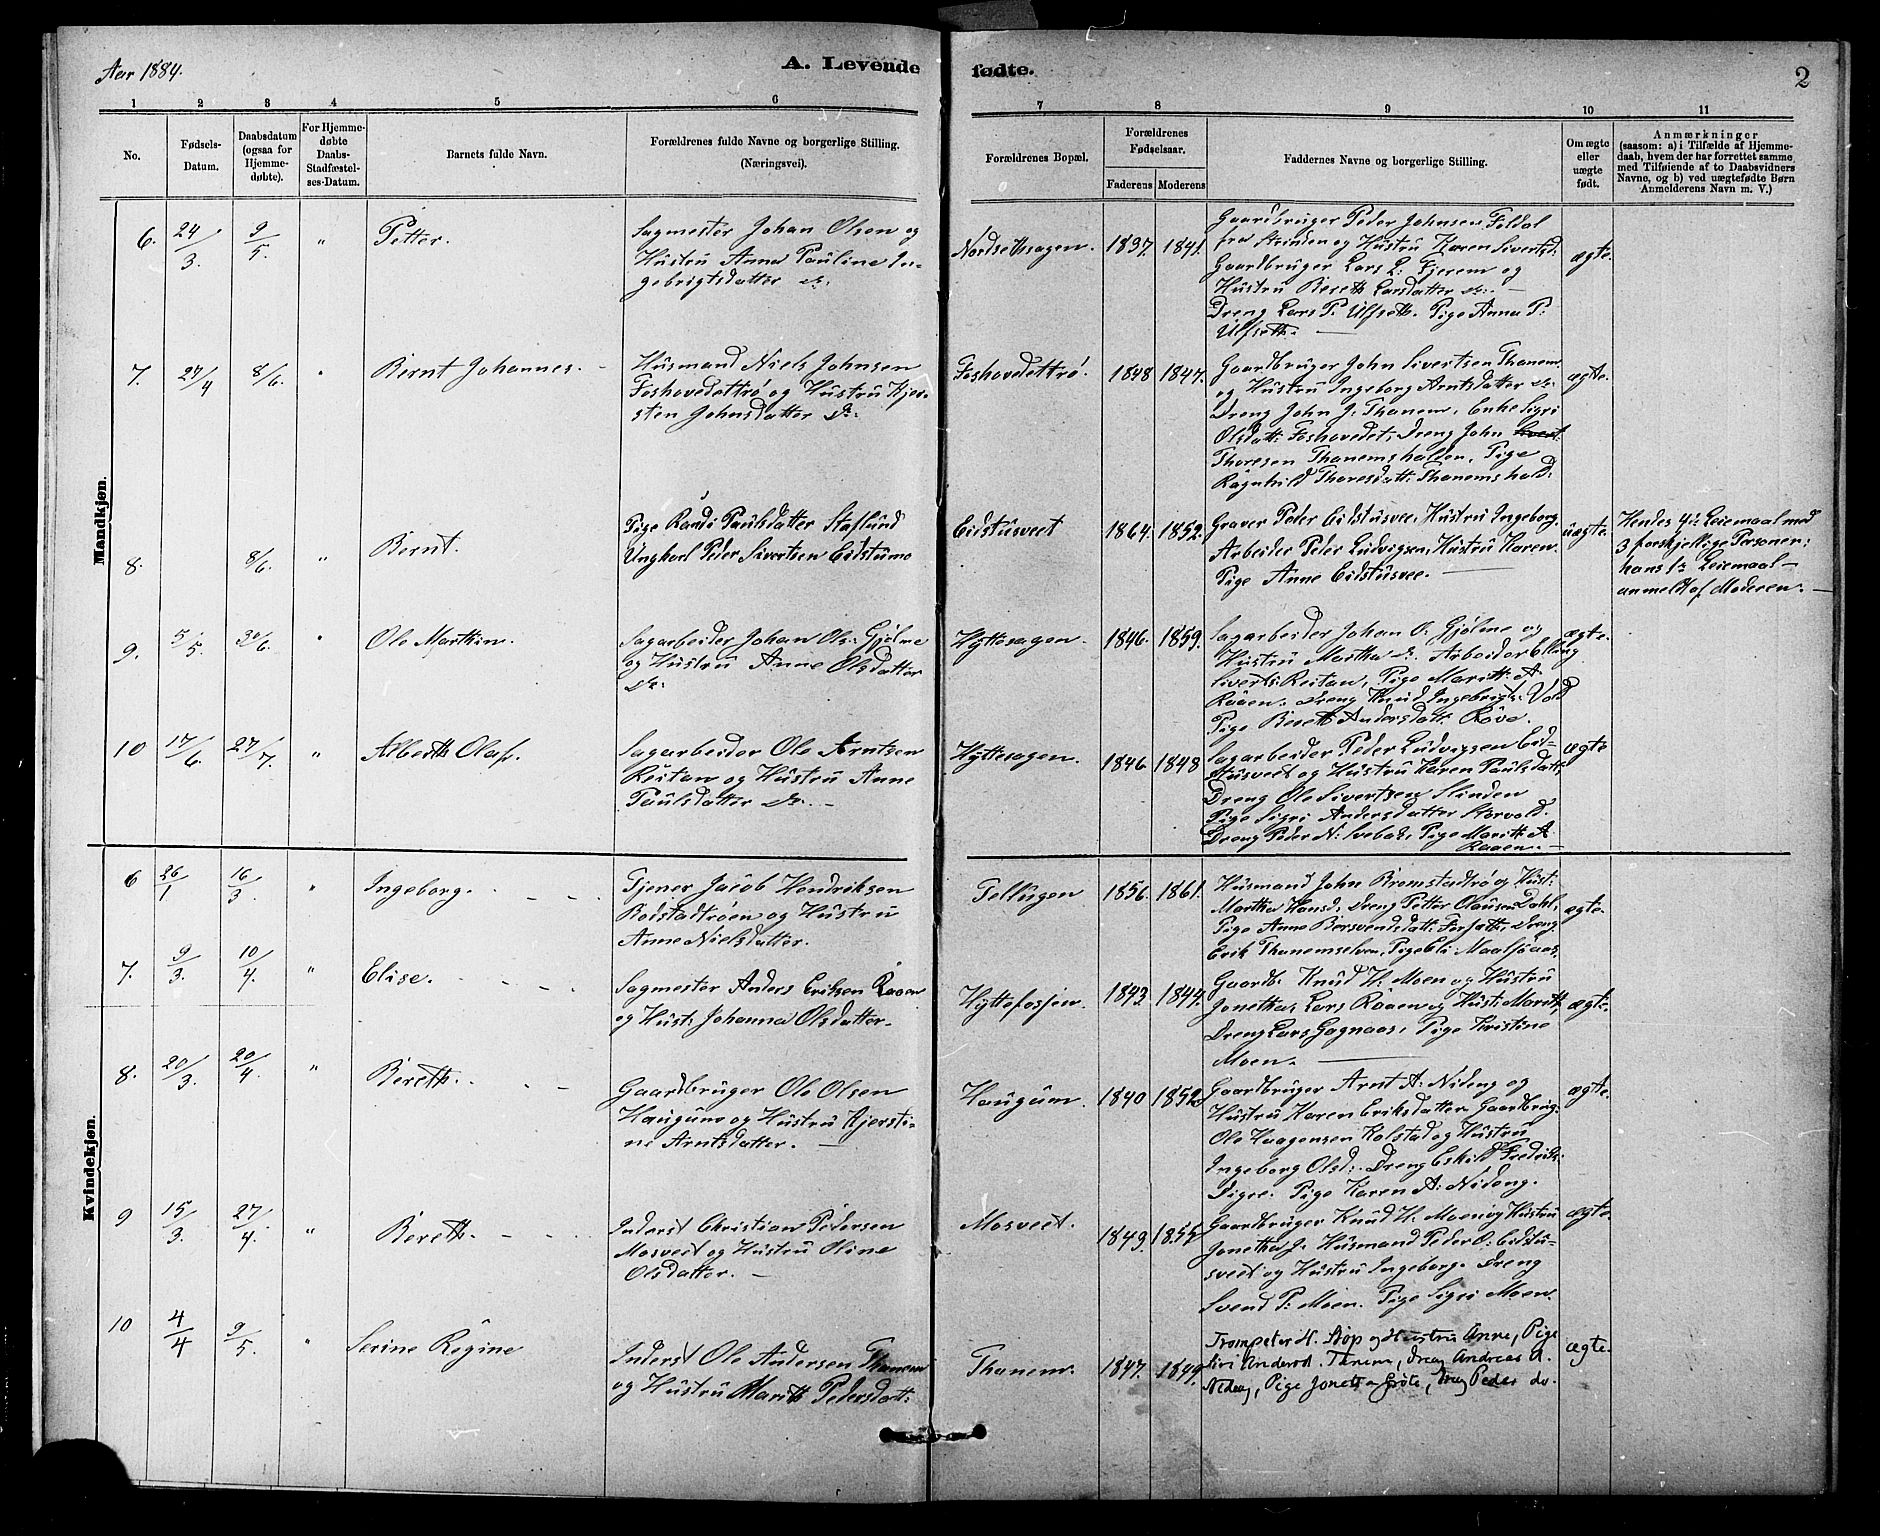 Aar 1884.
A. Levende fødte.
2
1 2 3 4 5 6 7 8 9 10 11
No.
Fødsels-
Datum.
Daabsdatum
(ogsaa for
Hjemme-
døbte).
For Hjemme-
døbte
Daabs-
Stadfæstel-
ses-Datum.
Barnets fulde Navn.
Forældrenes fulde Navne og borgerlige Stilling.
(Næringsvei).
Forældrenes Bopæl.
Forældrenes
Fødselsaar.
Faderens Moderens
Faddernes Navne og borgerlige Stilling.
Om ægte
eller
uægte
født.
Anmærkninger
(saasom: a) i Tilfælde af Hjemme-
daab, hvem der har forrettet samme
med Tilføiende af to Daabsvidners
Navne, og b) ved uægtefødte Børn
Anmelderens Navn m. V.)
Mandkjøn.
6. 24/3. 9/5. " Petter.
Sagmester Johan Olsen og
Hustru Anna Pauline In-
gebrigtsdatter
Nordsetsagen. 1837. 1841.
Gaardbruger Peder Johnsen
fra Strinden og Hustru Karen Sivertsd:
Gaardbruger Lars L: Fjerem og
Hustru Bereth Larsdatter
Dreng Lars P. Ulfseth. Pige Anna P:
Ulfseth.
ægte.
7. 27/4 8/6. " Bernt Johannes.
Husmand Niels Johnsen
Foshovedettrø og Hustru Kjer-
sten Johnsdatter
Foshovedettrø. 1848 1847.
Gaardbruger John Sivertsen Thanem
og Hustru Ingeborg Arntsdatter
Dreng John J: Thanem. Enke Sigri
Olsdatt: Foshovedet, Dreng John
Thoresen Thanemshallen. Pige
Ragnhild Thoresdatt: Thanemshald:
ægte.
8. 8/6. " Bernt.
Pige Randi Paulsdatter Staflund
Ungkarl Peder Sivertsen Eidstumo
Eidstusveet 1864. 1852.
Graver Peder Eidstusvee, Hustru Ingeborg.
Arbeider Peder Ludvigsen, Hustru Karen.
Pige Anne Eidstusvee.
uægte.
Hendes 4de Leiemaal med
3 forskjellige Personer;
hans 1ste Leiemaal –
anmeldt af Moderen.
9. 5/5. 30/6. " Ole Marthin.
Sagarbeider Johan Ols: Gjølme
og Hustru Anne Olsdatter
Hyttesagen. 1846. 1859.
Sagarbeider Johan O: Gjølme og
Hustru Martha Arbeider Elling
Siverts: Reitan, Pige Marith A
Raaen. Dreng Knud Ingebrigts: Vold
Pige Bereth Andersdatt:
ægte.
10 17/6. 27/7. " Alberth Olaf.
Sagarbeider Ole Arntsen
Reitan og Hustru Anne
Paulsdatter
Hyttesagen. 1846 1848
Sagarbeider Peder Ludvigsen Eid-
stusveet og Hustru Karen Paulsdatt:
Dreng Ole Sivertsen Slinden
Pige Sigri Andersdatter Storvold.
Dreng Peder N: Pige Marith A
Raaen.
ægte
Kvindekjøn.
6 26/1 16/3. " Ingeborg.
Tjener Jacob Hendriksen
Bodstadtrøen og Hustru
Anne Nielsdatter.
Tellugen 1856. 1861.
Husmand John Bromstadtrø og Hust:
Martha Hansd: Dreng Petter Olausen Dahl,
Pige Anne
Erik Thanemselven, Pige Eli
ægte.
7. 9/3. 10/4. " Elise.
Sagmester Anders Eriksen Raaen
og Hust: Johanna Olsdatter.
Hyttefossen. 1843. 1844.
Gaardb: Knud H: Moen og Hustru
Jonetha, Lars Raaen og Hust: Marith,
Dreng Lars Gagnaas, Pige Kristine
Moen.
ægte.
8. 20/3. 20/4. " Bereth.
Gaardbruger Ole Olsen
Haugum og Hustru Kjersti-
ne Arntsdatter.
Haugum. 1840 1852
Gaardbruger Arnt A: Nideng og
Hustru Karen Eriksdatter. Gaardbrug:
Ole Haagensen Kolstad og Hustru
Ingeborg Olsd:. Dreng Eskild Fredrik:
Digre. Pige Karen A: Nideng.
ægte.
9 15/3. 27/4. " Bereth.
Inderst Christian Pedersen
Mosveet og Hustru Oline
Olsdatter.
Mosveet. 1849. 1855.
Gaardbruger Knud H. Moen og Hustru
Jonetha J. Husmand Peder O: Eidstu-
sveet og Hustru Ingeborg. Dreng
Svend P: Moen. Pige Sigri Moen.
ægte.
10 4/4 9/5. " Serine Regine
Inderst Ole Andersen Thanem
og Hustru Marith Pedersdatt:
Thanem. 1847. 1849.
Trompeter H. Stop og Hustru Anne, Pige
Siri Andersd. Tanem, Dreng Andreas A.
Nideng, Pige Joneth Grøte, Dreng Peder do.
ægte.